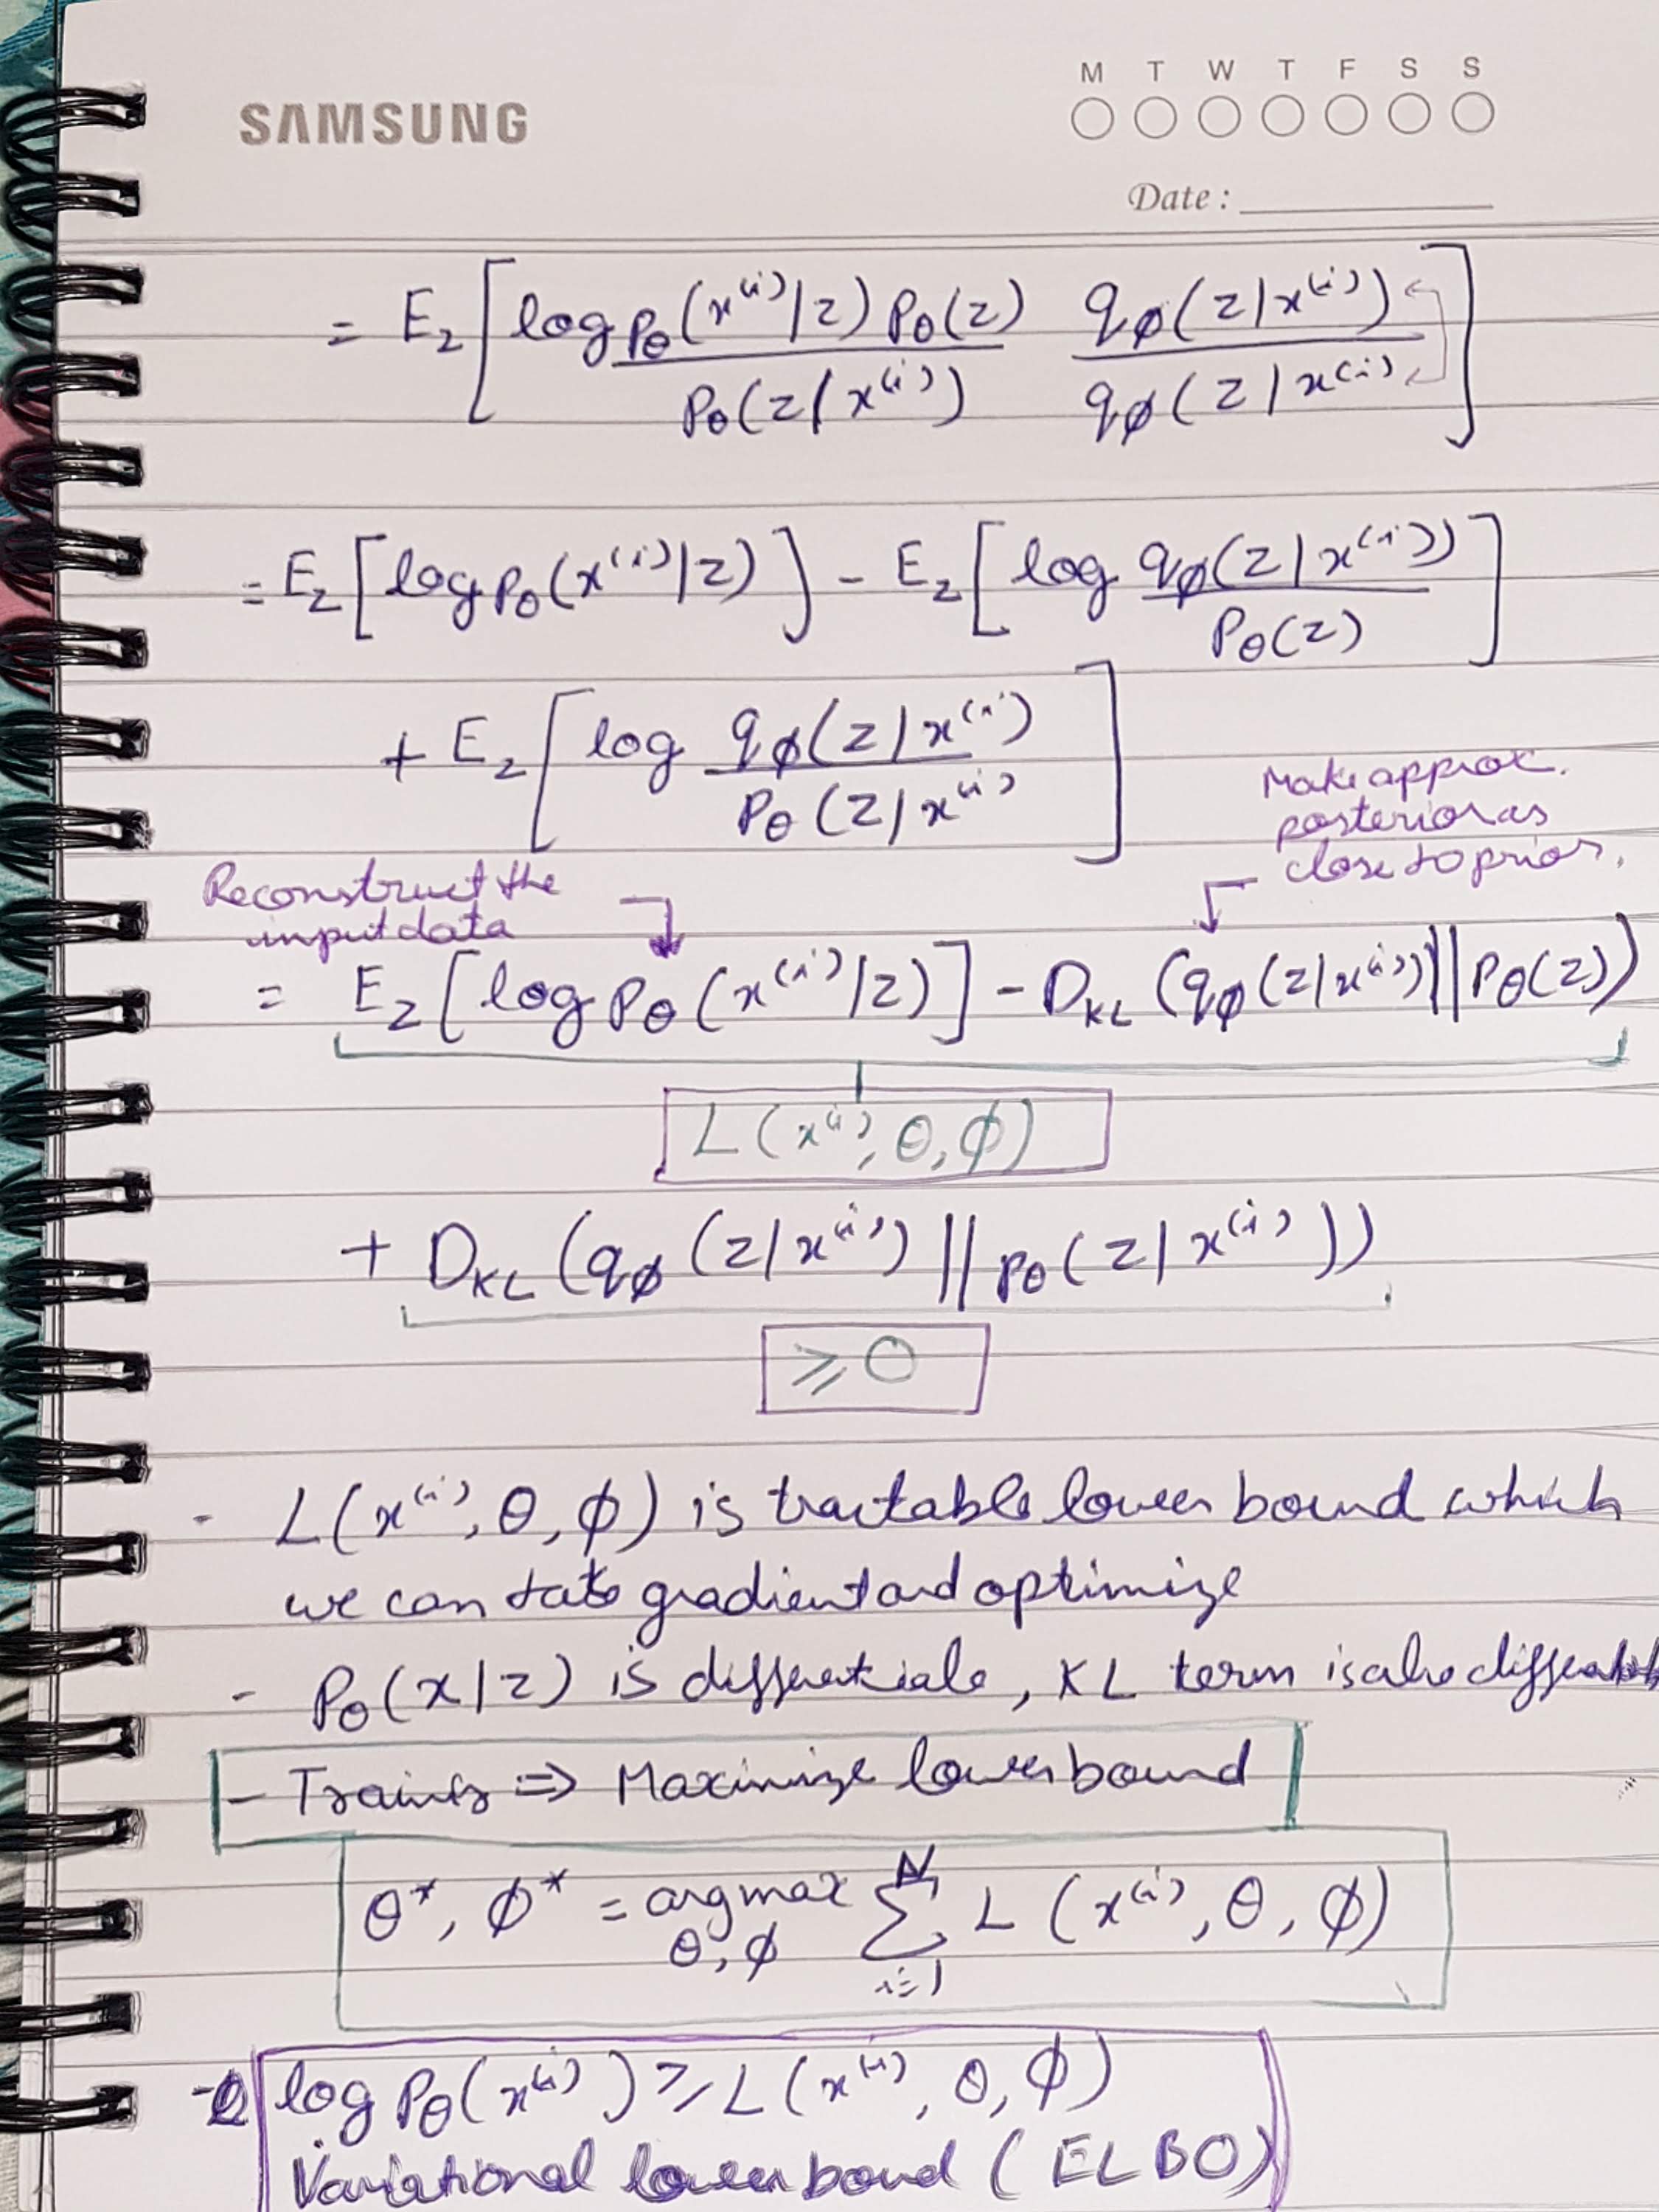 SAMSUNG
M T W T F S S
Date :
= E_z [ log p_θ(x^(i)|z) p_θ(z) / p_θ(z|x^(i)) q_ϕ(z|x^(i)) / q_ϕ(z|x^(i) ]
= E_z [ log p_θ(x^(i)|z) ] - E_z [ log q_ϕ(z|x^(i)) / p_θ(z) ]
+ E_z [ log q_ϕ(z|x^(i) ) / p_θ(z|x^(i) ]
Make approx.
posterior as
close to prior.
Reconstruct the
input data
= E_z [ log p_θ(x^(i)|z) ] - D_KL (q_ϕ(z|x^(i)) || p_θ(z))
L(x^(i), θ, ϕ)
+ D_KL (q_ϕ(z|x^(i)) || p_θ(z|x^(i)))
⩾ 0
- L(x^(i), θ, ϕ) is tractable lower bound which
we can take gradient and optimize
- p_θ(x|z) is , KL term is also
- ⇒ Maximize lower bound
θ*, ϕ* = argmax_{θ,ϕ} Σ_{i=1}^{N} L(x^(i), θ, ϕ)
- log p_θ(x^(i)) ⩾ L(x^(i), θ, ϕ)
Variational lower bound (ELBO)